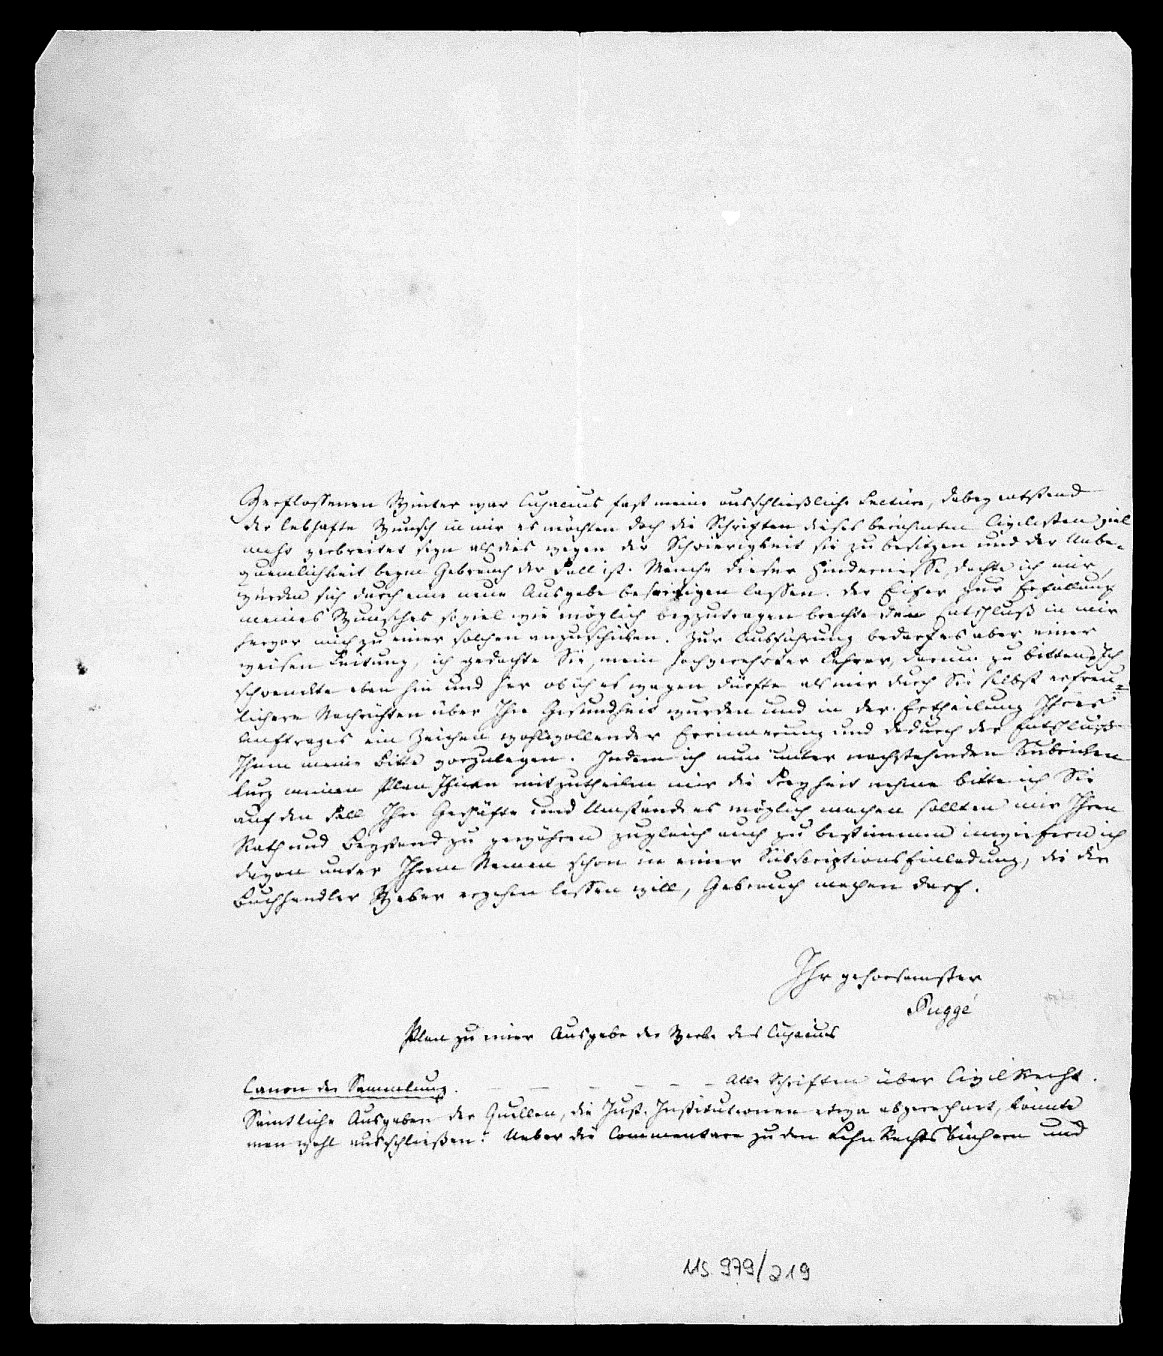 Verflossenen Winter war Cujacius fast meine ausschließliche Lectüre, dabey entstand
der lebhafte Wunsch in mir es möchten doch die Schriften dieses berühmten Civilisten viel
mehr verbreitet seyn als dies wegen der Schwierigkeit sie zu besitzen und der Unbe-
quemlichkeit beym Gebrauch der Fall ist. Manche dieser Hindernisse, dachte ich mir,
würden sich durch eine neue Ausgabe beseitigen lassen. Der Eifer zur Erfüllung
meines Wunsches soviel wie möglich beyzutragen brachte den Entschluß in mir
hervor mich zu einer solchen anzuschicken. Zur Ausführung bedarf es aber einer
weisen Leitung, ich gedachte Sie, mein hochverehrter Lehrer, darum zu bitten. Ich
schwankte eben hin und her ob ich es wagen dürfte als mir durch Sie selbst erfreu-
lichere Nachrichten über Ihre Gesundheit wurden und in der Ertheilung Ihres
Auftrages ein Zeichen wohlwollender Erinnerung und dadurch der Entschluß
Ihnen meine Bitte vorzulegen. Indem ich nun unter nachstehenden Rubriken
kurz meinen Plan Ihnen mitzutheilen mir die Freyheit nehme bitte ich Sie
auf den Fall Ihre Geschäfte und Umstände es möglich machen sollten mir Ihren
Rath und Beystand zu gewähren zugleich auch zu bestimmen inwiefern ich
davon unter Ihrem Namen schon in einer Subscriptions Einladung, die der
Buchhändler Weber ergehen lassen will, Gebrauch machen darf.
Ihr gehorsamster
Puggé
Plan zu einer Ausgabe der Werke des Cujacius
Canon der Sammlung. – – – – – – Alle Schriften über Civil Recht.
Sämtliche Ausgaben der Quellen, die Just. Institutionen etwa abgerechnet, könnte
man wohl ausschließen. Ueber die Commentare zu den Lehn Rechts büchern und
Ms. 979/219